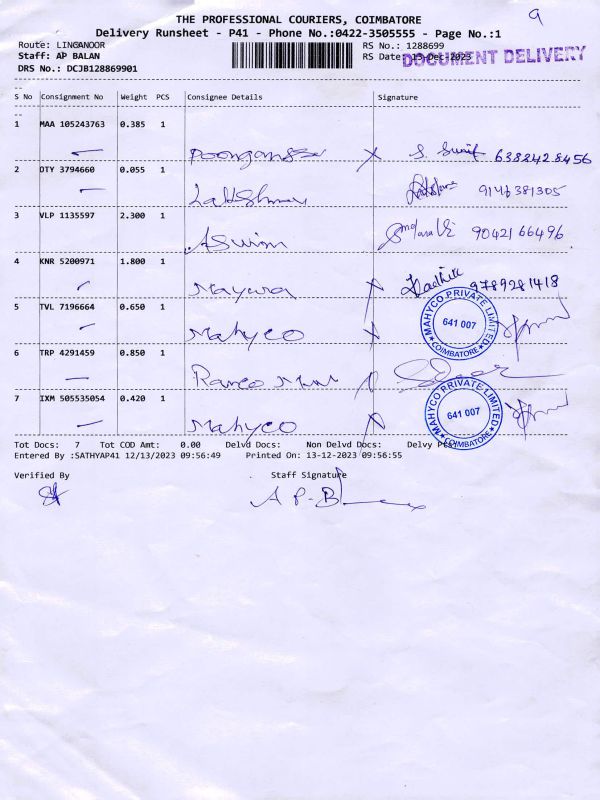 9
THE PROFESSIONAL COURIERS, COIMBATORE
Delivery Runsheet - P41 - Phone No.:0422-3505555 - Page No.:1
Route: LINGANOOR
RS No.: 1288699
Staff: AP BALAN
RS Date: 13-Dec-2023
DOCUMENT DELIVERY
DRS No.: DCJB128869901
S No Consignment No Weight PCS Consignee Details Signature
1 MAA 105243763 0.385 1
S. Sunil 6382428456
2 DTY 3794660 0.055 1
Lakshmi 9146381305
3 VLP 1135597 2.300 1
Aswin 9042166496
4 KNR 5200971 1.800 1
Mayura 9789281418
5 TVL 7196664 0.650 1
Mahyco
MAHYCO PRIVATE LIMITED
641 007
COIMBATORE
6 TRP 4291459 0.850 1
7 IXM 505535054 0.420 1
Mahyco
MAHYCO PRIVATE LIMITED
641 007
COIMBATORE
Tot Docs: 7 Tot COD Amt: 0.00 Delvd Docs: Non Delvd Docs: Delvy Pcs:
Entered By :SATHYAP41 12/13/2023 09:56:49 Printed On: 13-12-2023 09:56:55
Verified By Staff Signature
A P. B